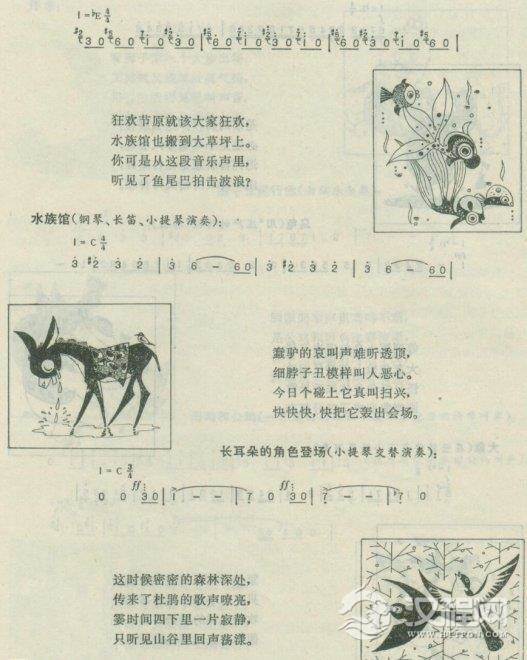 1=♭E 4/4
狂欢节原就该大家狂欢,
水族馆也搬到大草坪上。
你可是从这段音乐声里,
听见了鱼尾巴拍击波浪?
水族馆(钢琴、长笛、小提琴演奏):
1=C 4/4
3 ♯2 3 2 | 3 6 - 6 0 | 3 ♯2 3 2 | 3 6 - 6 0 |
蠢驴的哀叫声难听透顶,
细脖子丑模样叫人恶心。
今日个碰上它真叫扫兴,
快快快,快把它轰出会场。
长耳朵的角色登场(小提琴交替演奏):
1=C 3/4
ff ff
0 0 3 0 | 1 - - | 7 0 3 0 | 1 - - | 7 0
这时候密密的森林深处,
传来了杜鹃的歌声嘹亮,
霎时间四下里一片寂静,
只听见山谷里回声荡漾。